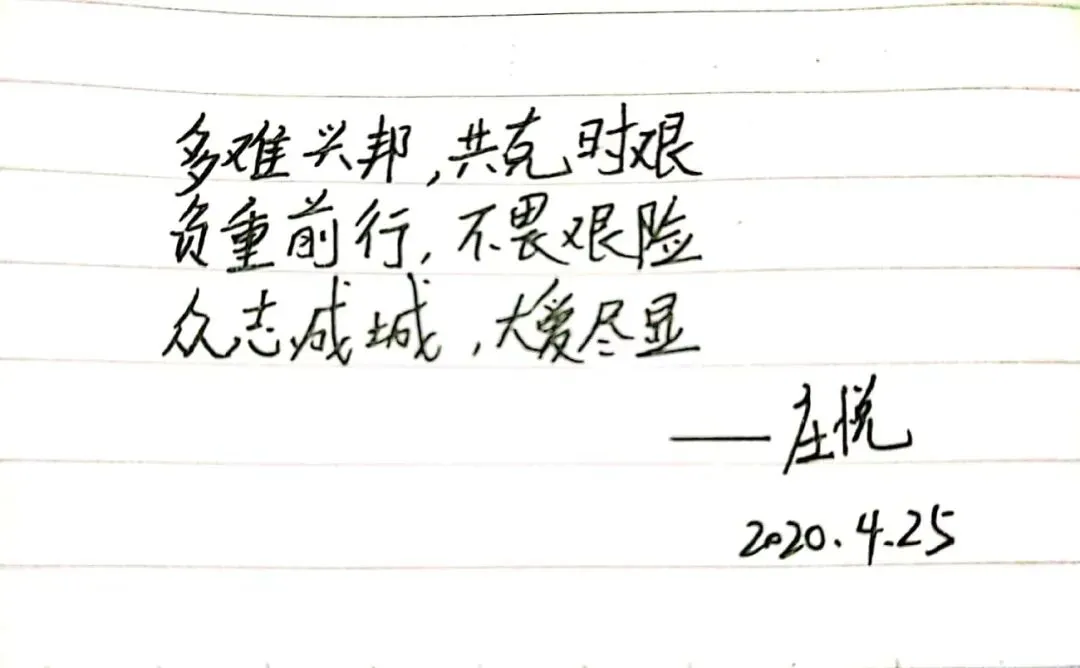 多难兴邦,共克时艰
负重前行,不畏艰险
众志成城,大爱尽显
——庄悦
2020.4.25